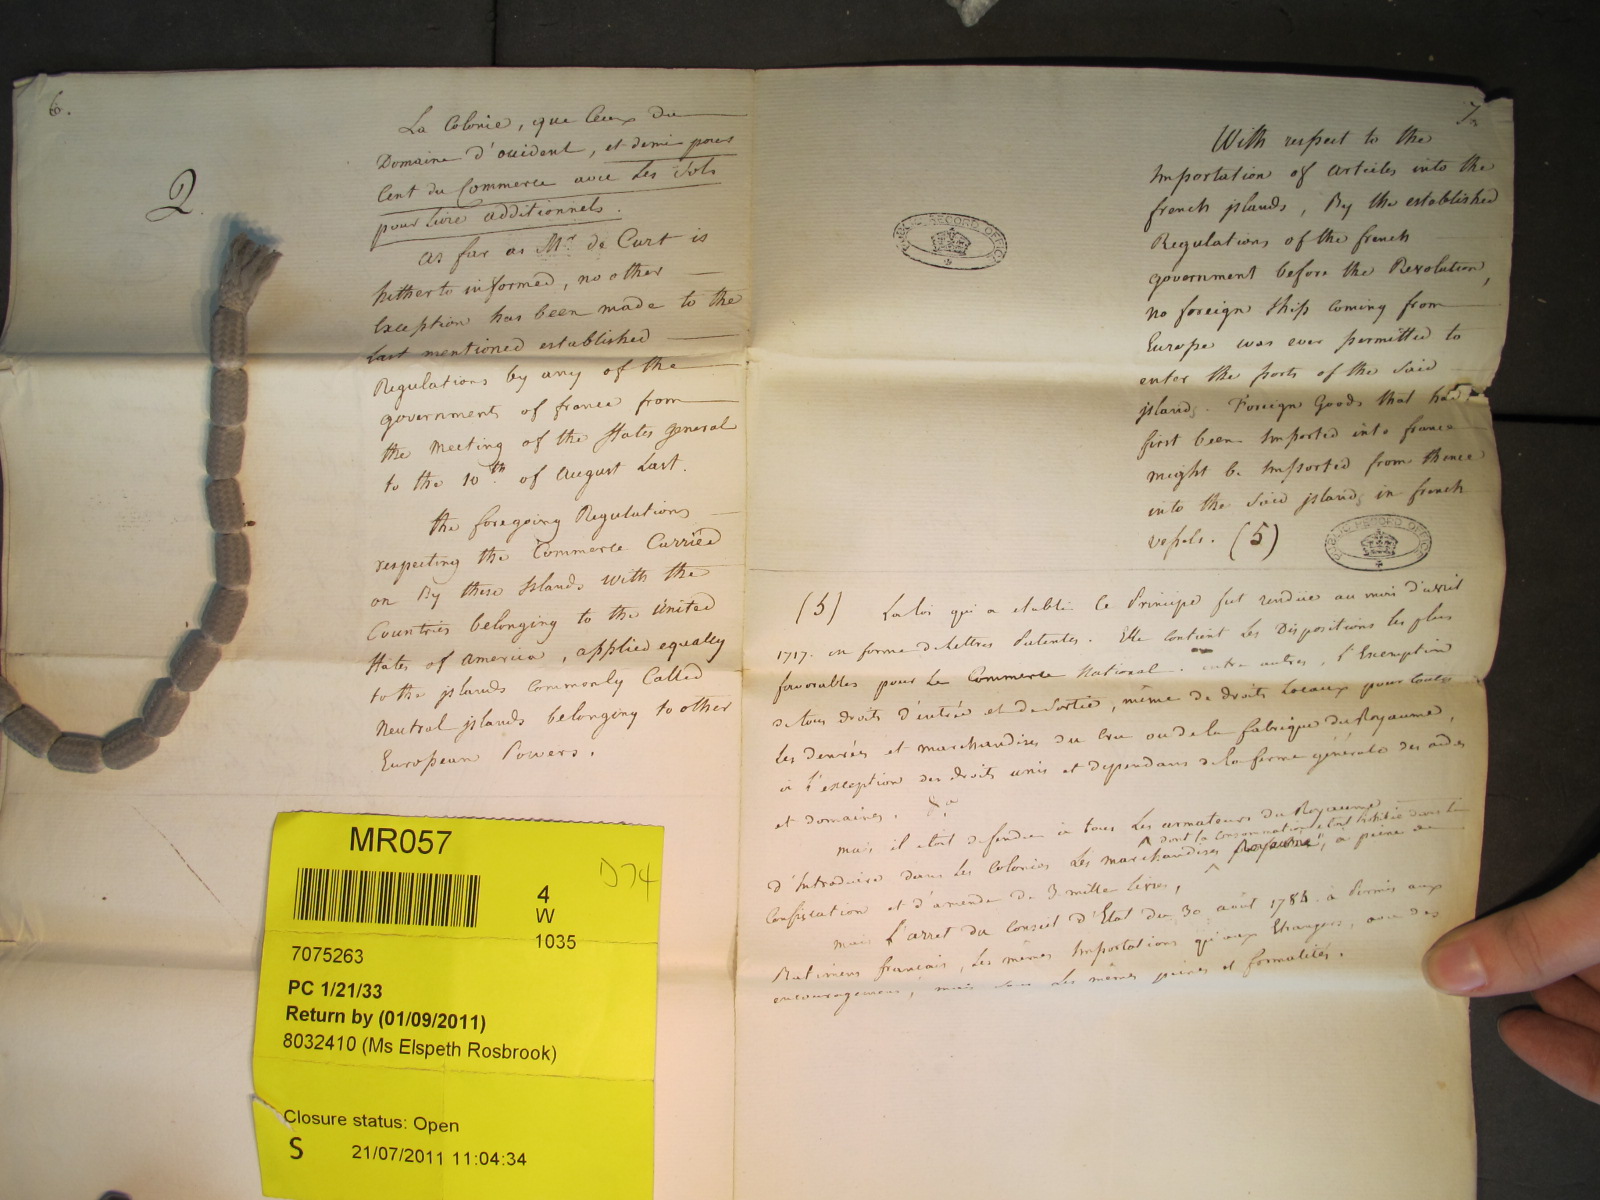 6.
2.
La Colonie, que Ceux du
Domaine d'occident, et demi pour
Cent du Commerce avec Les Sols
pour livre additionnels.
As far as Mr. de Curt is
hitherto informed, no other
Exception has been made to the
Last mentioned established
Regulations by any of the
governments of france from
the meeting of the States general
to the 10th of August Last.
the foregoing Regulations
respecting the Commerce Carried
on By these Islands with the
Countries belonging to the United
States of America, applied equally
to the islands Commonly Called
Neutral islands belonging to other
European Powers.
MR057
D74
4
W
1035
7075263
PC 1/21/33
Return by (01/09/2011)
8032410 (Ms Elspeth Rosbrook)
Closure status: Open
S 21/07/2011 11:04:34
7.
PUBLIC RECORD OFFICE
With respect to the
Importation of articles into the
french islands, By the established
Regulations of the french
government before the Revolution,
no foreign Ship coming from
Europe was ever permitted to
enter the ports of the Said
islands. Foreign Goods that had
first been Imported into france
might be Imported from thence
into the Said islands in french
vessels. (5)
PUBLIC RECORD OFFICE
(5) La Loi qui a etabli Ce Principe fut rendue au mois d'avril
1717. en forme de Lettres Patentes. Elle contient Les Dispositions les plus
favorables pour Le Commerce National. entre autres, l'Exemption
de tous droits d'entrée et de Sortie, même de droits Locaux pour toutes
les denrées et marchandises du Cru ou de la fabrique du Royaume,
à l'exception des droits unis et dependans de la ferme générale des aides
et domaines. &a
Mais il etoit defendu à tous Les armateurs du Royaume
dont la Consommation etoit prohibée dans le
d'Introduire dans Les Colonies Les marchandises Royaume, à peine de
Confiscation et d'amende de 3 mille Livres,
mais L'arret du Conseil d'Etat du 30 août 1784. à Permis aux
Batimens francais, Les mêmes Importations qu'aux Etrangers, avec des
encouragemens, mais Sous Les mêmes peines et formalités.